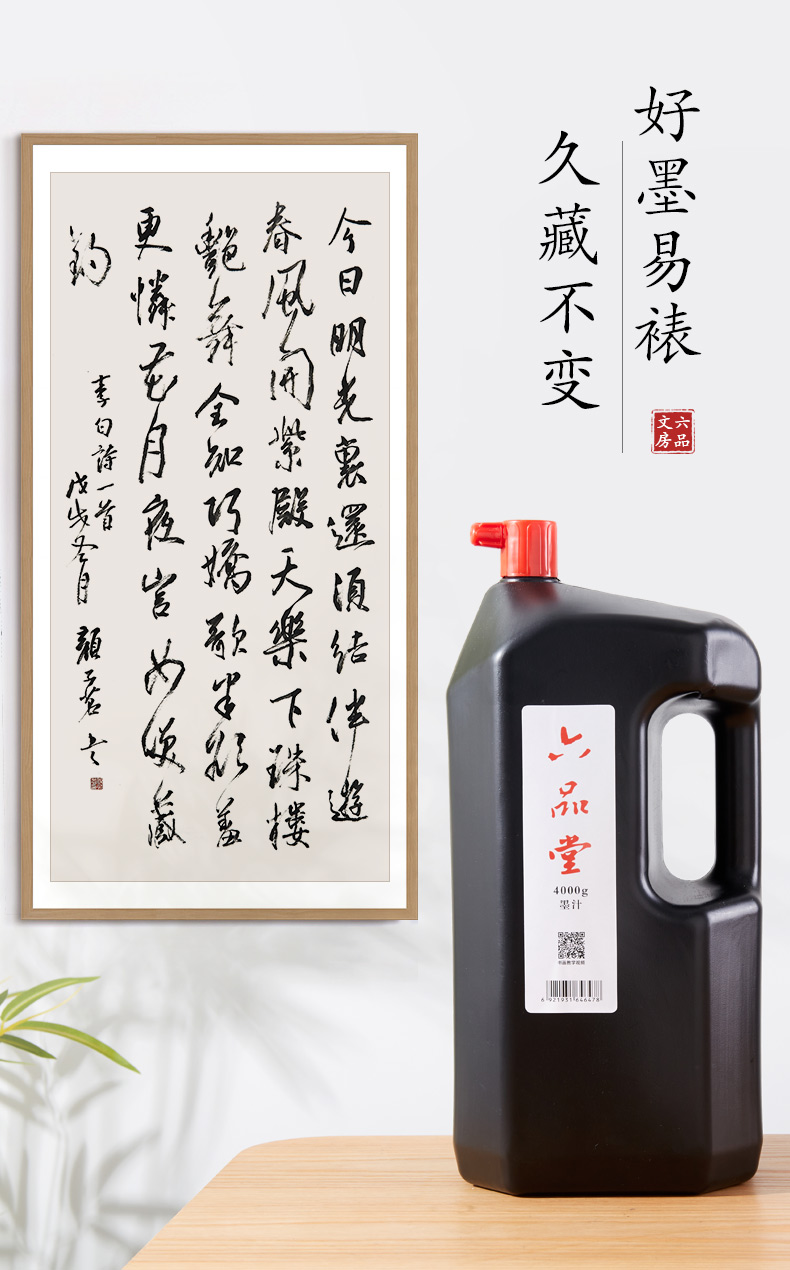 好墨易裱
久藏不变
六品
文房
今日明光裏還須結伴遊
春風開紫殿天樂下珠樓
艷舞全知巧嬌歌半欲羞
更憐花月夜宮女笑藏
鈎
李白詩一首
戊戌冬月
六品堂
4000g
墨汁
书画教学视频
6 921931 646478